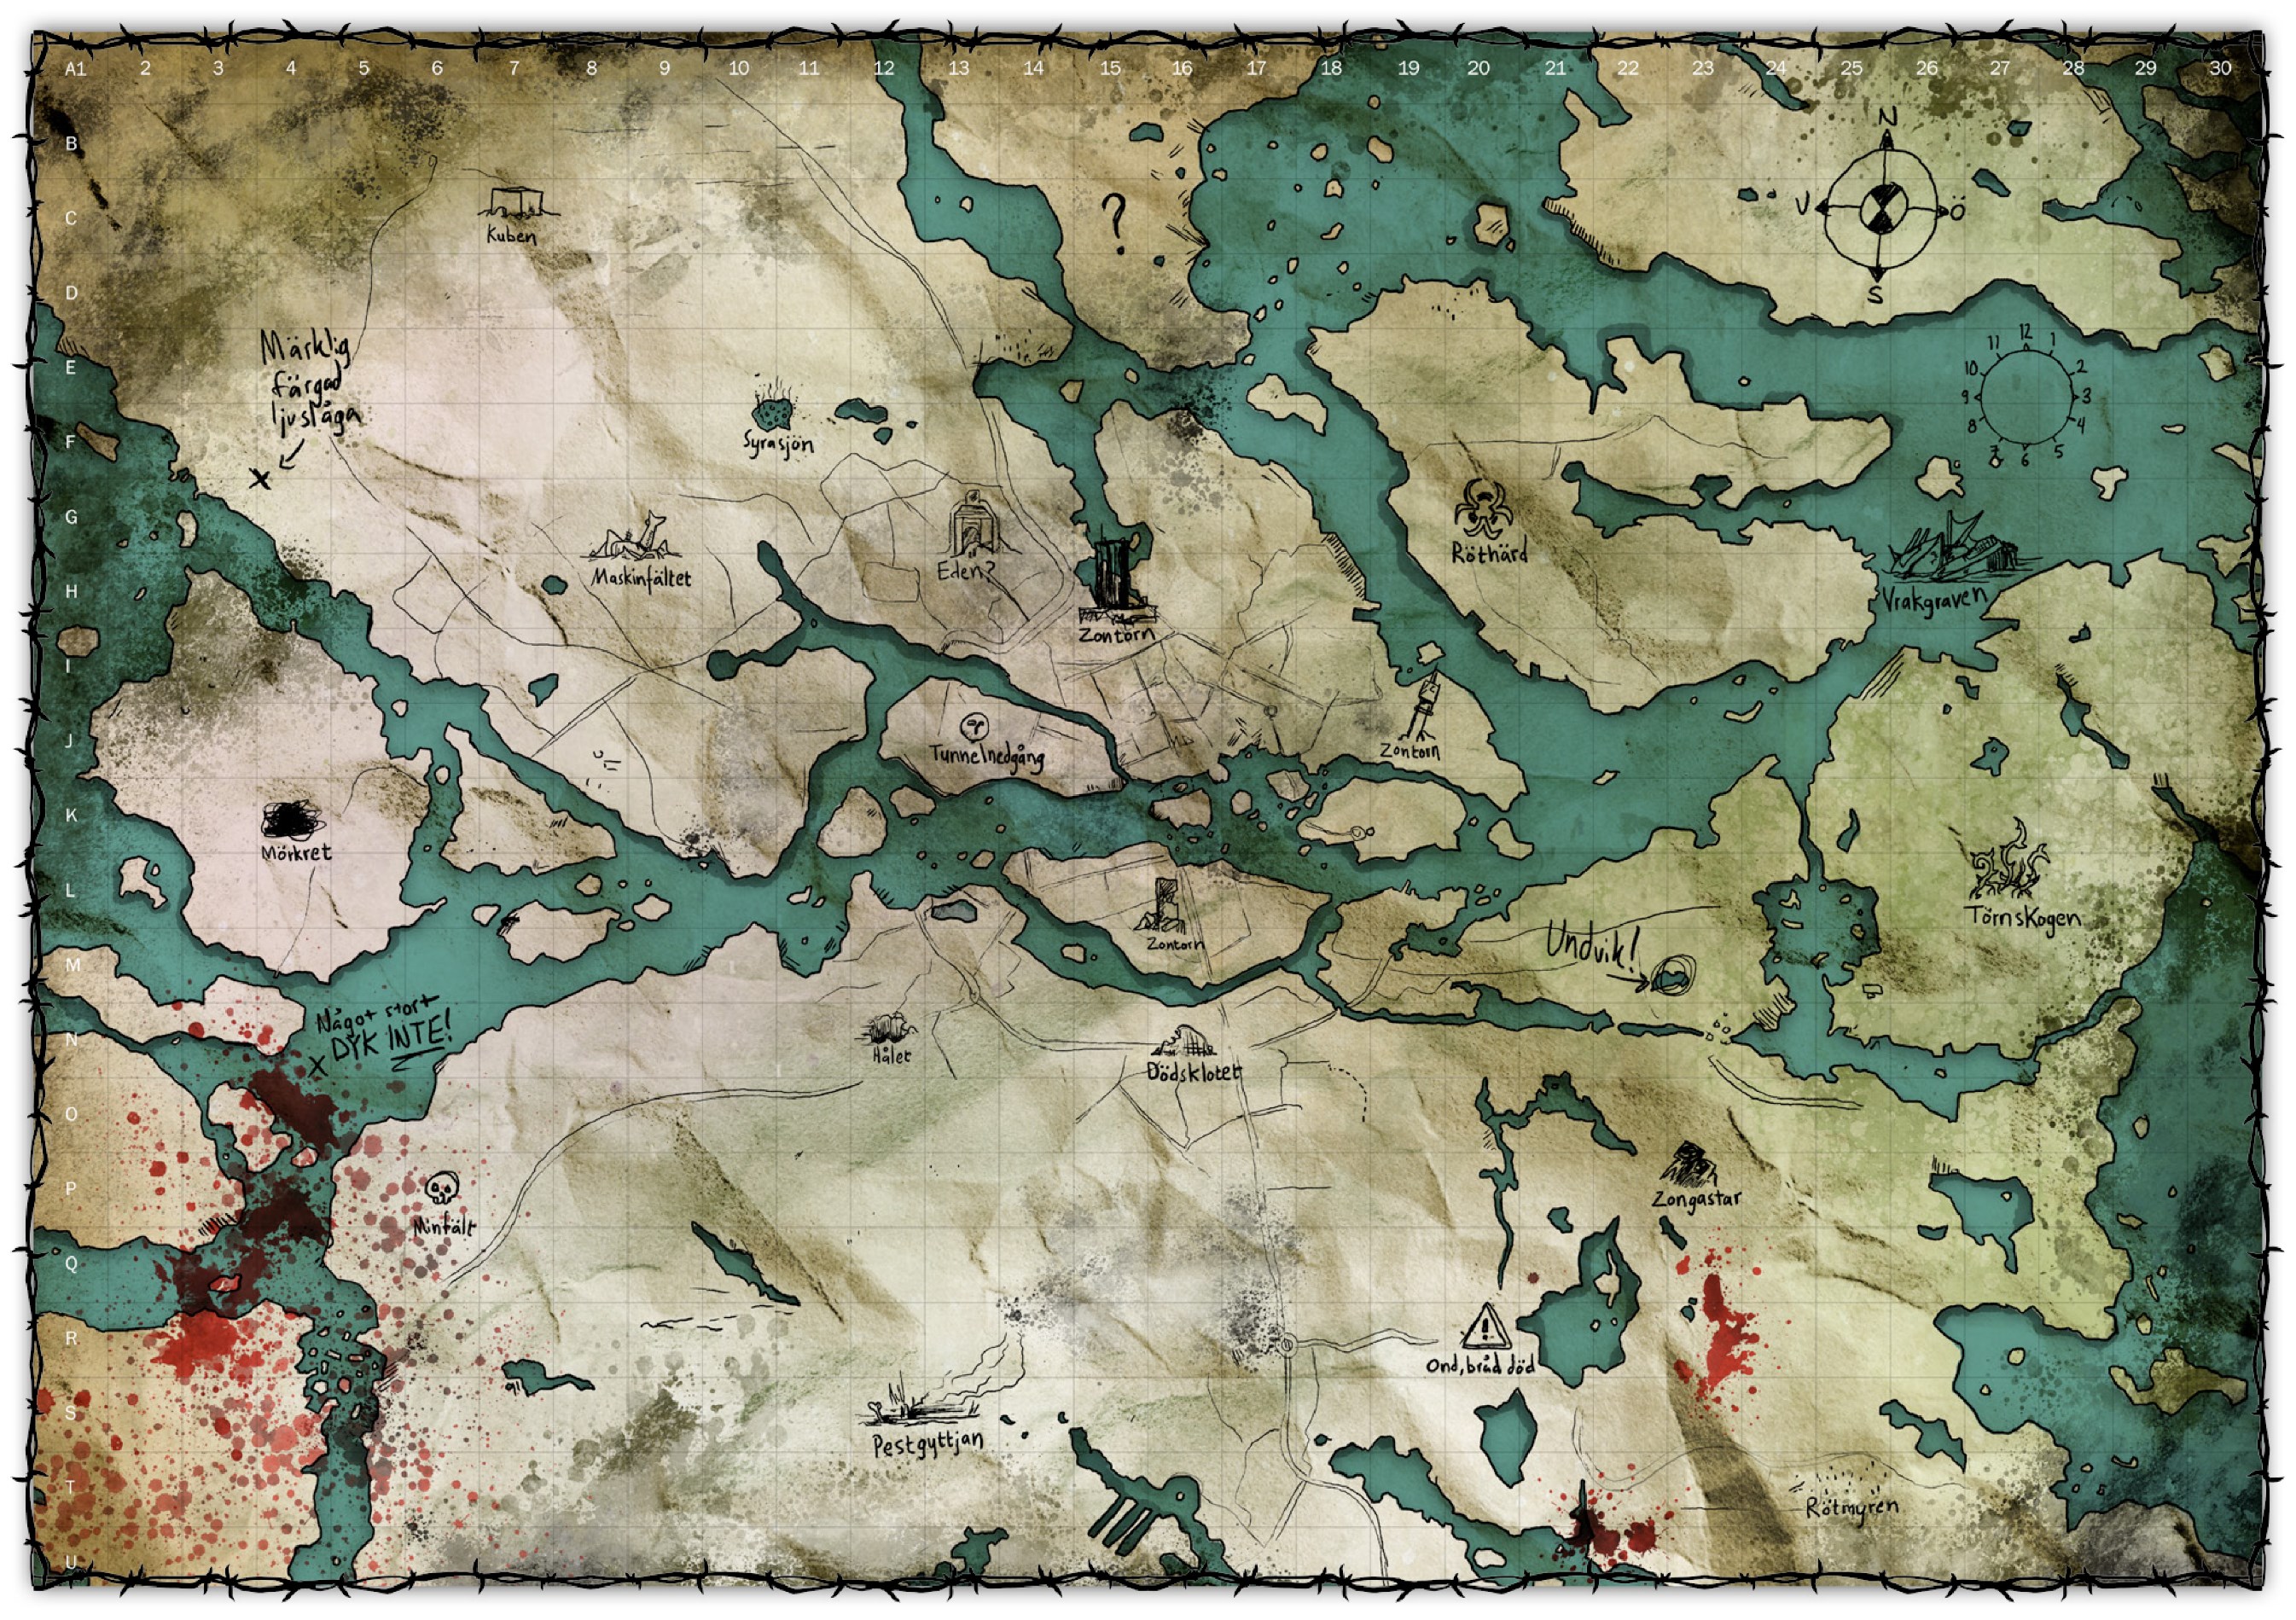 A1 2 3 4 5 6 7 8 9 10 11 12 13 14 15 16 17 18 19 20 21 22 23 24 25 26 27 28 29 30
B
C
D
E
F
G
H
I
J
K
L
M
N
O
P
Q
R
S
T
U
N
V
Ö
S
?
Kuben
12
1
2
3
4
5
6
7
8
9
10
11
Märklig
färgad
ljuslåga
X
Syrasjön
Maskinfältet
Eden?
Zontorn
Röthärd
Vrakgraven
Tunnelnedgång
Zontorn
Mörkret
Törnskogen
Zontorn
Undvik!
Något stort
DYK INTE!
X
Hålet
Dödsklotet
Minfält
Zongastar
Ond, bråd död
Pestgyttjan
Rötmyren